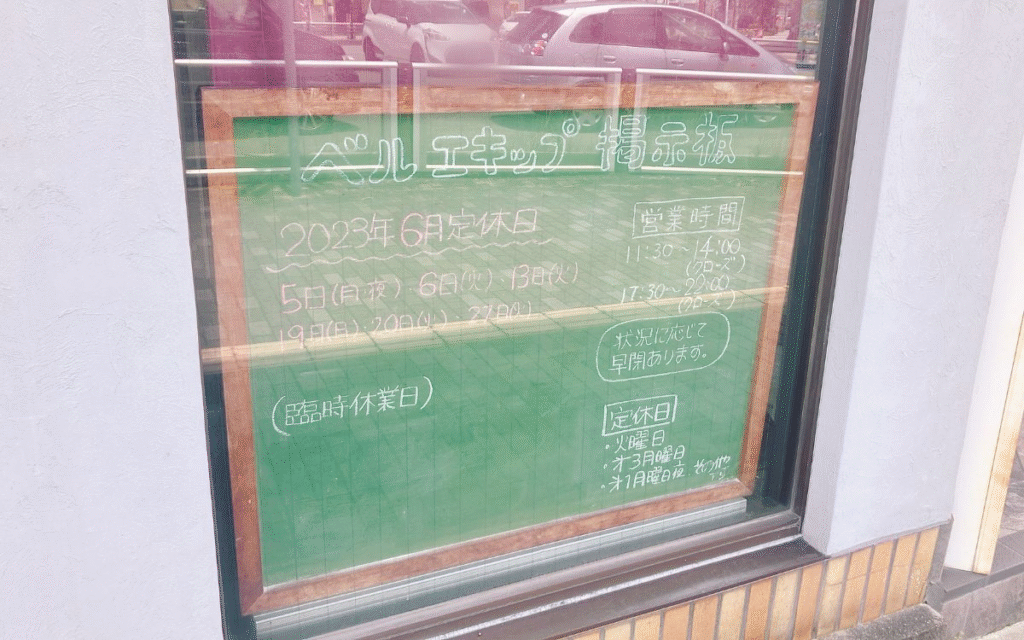 ベルエキップ 掲示板
2023年6月定休日
5日(月・夜)・6日(火)・13日(火)
19日(月)・20日(火)・27日(火)
(臨時休業日)
営業時間
11:30~14:00
(クローズ)
17:30~22:00
(クローズ)
状況に応じて
早閉あります。
定休日
・火曜日
・才3月曜日
・才1月曜日夜 その他